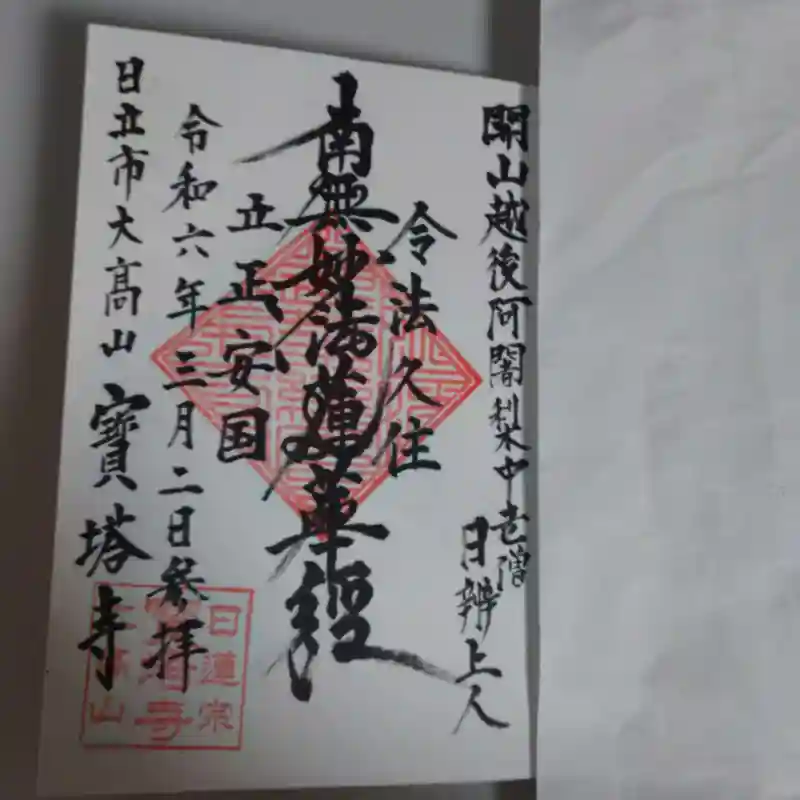 開山越後阿闍梨中老僧
日辨上人
令法久住
南無妙法蓮華経
立正安国
令和六年三月二日参拝
日立市大高山 寶塔寺
日蓮宗